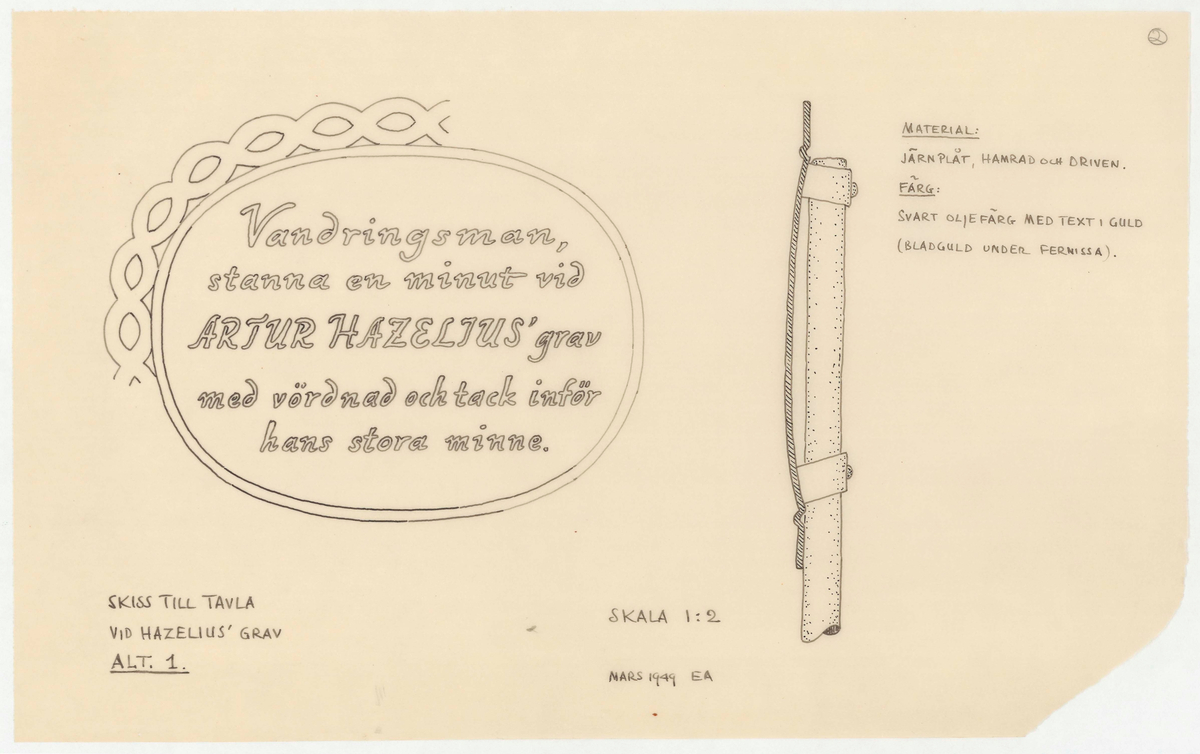 2
Vandringsman,
stanna en minut vid
ARTUR HAZELIUS' grav
med vördnad och tack inför
hans stora minne.
MATERIAL:
JÄRNPLÅT, HAMRAD OCH DRIVEN.
FÄRG:
SVART OLJEFÄRG MED TEXT I GULD
(BLADGULD UNDER FERNISSA).
SKISS TILL TAVLA
VID HAZELIUS' GRAV
ALT. 1.
SKALA 1:2
MARS 1949 EA